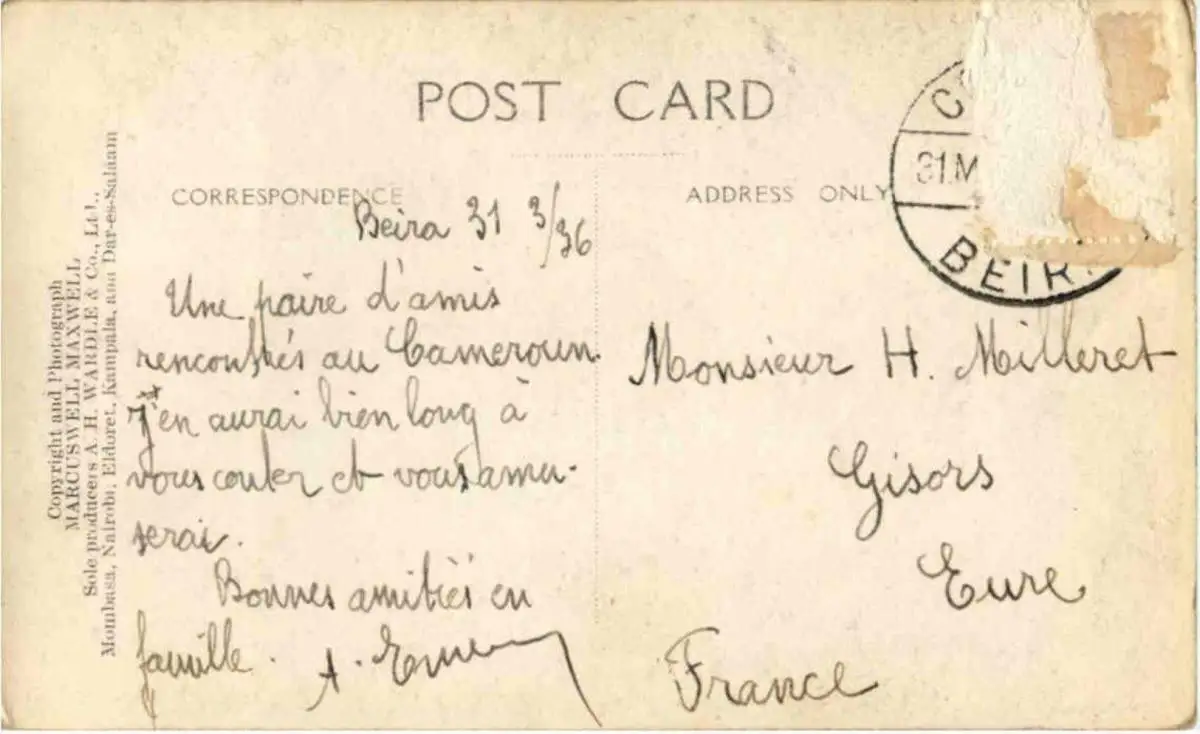 POST CARD
CORRESPONDENCE
ADDRESS ONLY
Beira 31 3/36
Une paire d'amis
rencontrés au Cameroun.
J'en aurai bien long à
vous conter et vous amu-
serai.
Bonnes amitiés en
famille.
A.
Monsieur H. Milleret
Gisors
Eure
France
31.M
BEIR
Copyright and Photograph
MARCUSWELL MAXWELL
Sole producers A. H. WARDLE & Co., Ltd.,
Mombasa, Nairobi, Eldoret, Kampala, and Dar-es-Salaam